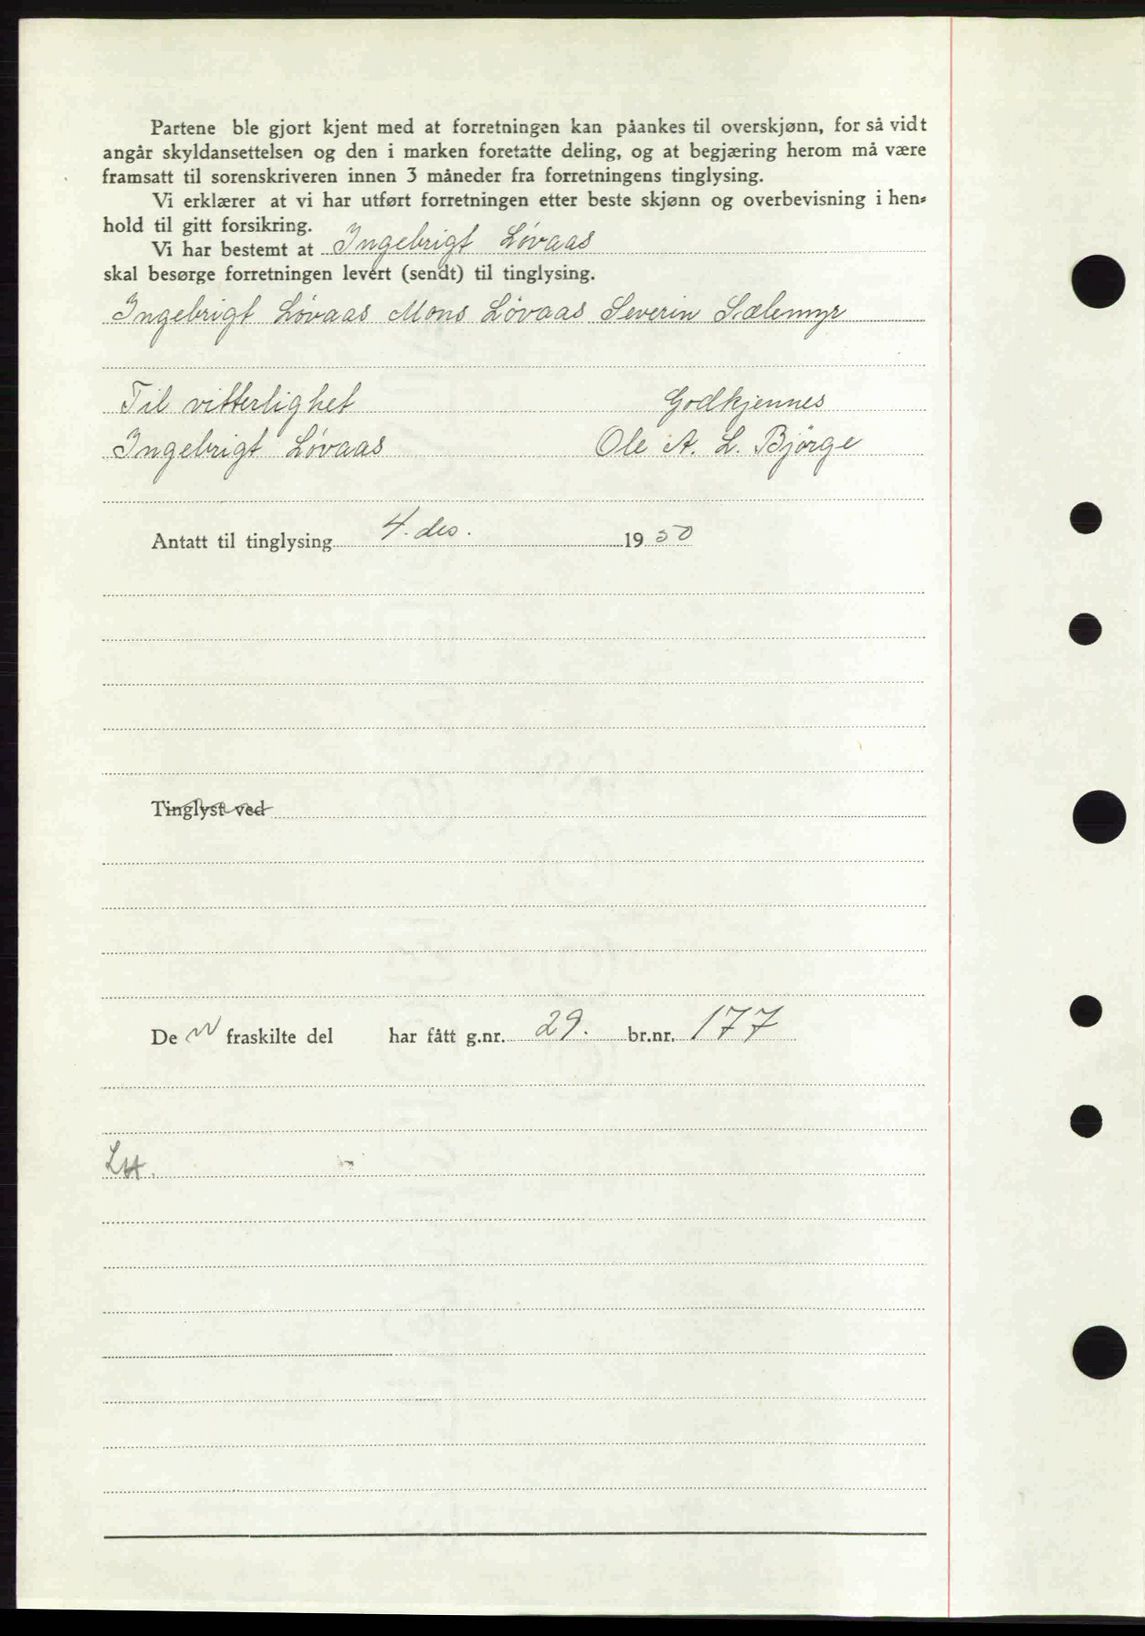 Partene ble gjort kjent med at forretningen kan påankes til overskjønn, for så vidt
angår skyldansettelsen og den i marken foretatte deling, og at begjæring herom må være
framsatt til sorenskriveren innen 3 måneder fra forretningens tinglysing.
Vi erklærer at vi har utført forretningen etter beste skjønn og overbevisning i hen-
hold til gitt forsikring.
Vi har bestemt at Ingebrigt Løvaas
skal besørge forretningen levert (sendt) til tinglysing.
Ingebrigt Løvaas Mons Løvaas Severin Sælemyr
Til vitterlighet Godkjennes
Ingebrigt Løvaas Ole A. L. Bjørge
Antatt til tinglysing 4. des. 1950
Tinglyst ved
De n fraskilte del har fått g.nr. 29. br.nr. 177
LH.